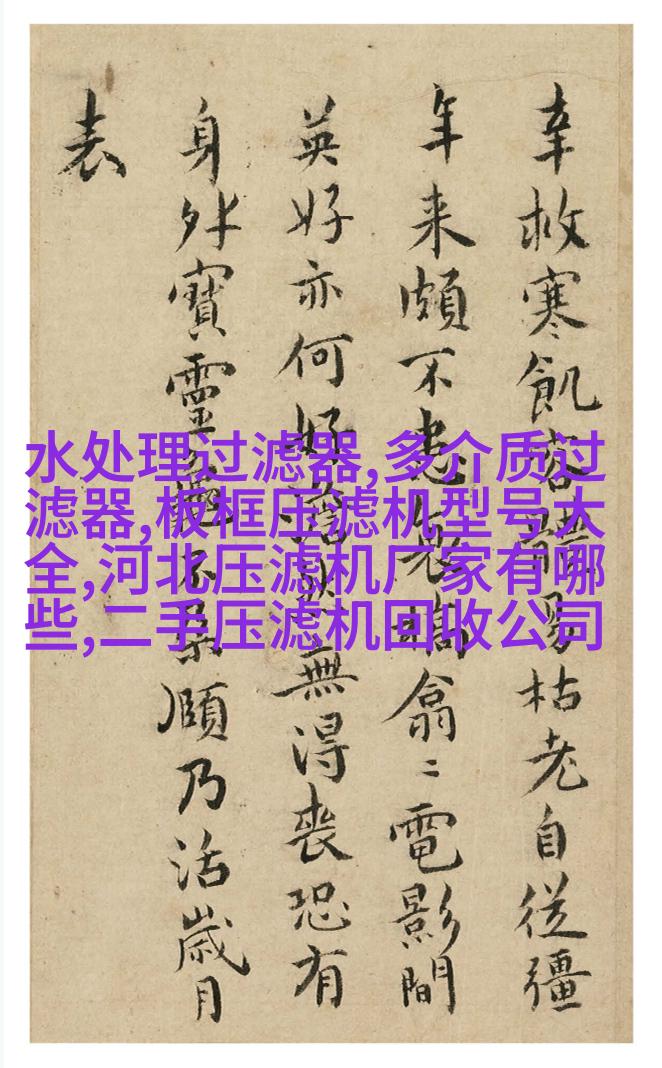 幸救寒飢容體易枯老自從彊
年来頗不患裘葛翕二電影間
英好亦何好無得喪恐有
身外寶靈不桑頤乃活歲月
表
水处理过滤器,多介质过
滤器,板框压滤机型号大
全,河北压滤机厂家有哪
些,二手压滤机回收公司